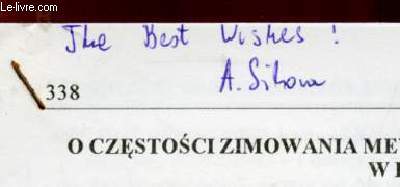 Le-livre.com
The Best Wishes !
A. Sikora
338
O CZĘSTOŚCI ZIMOWANIA
W